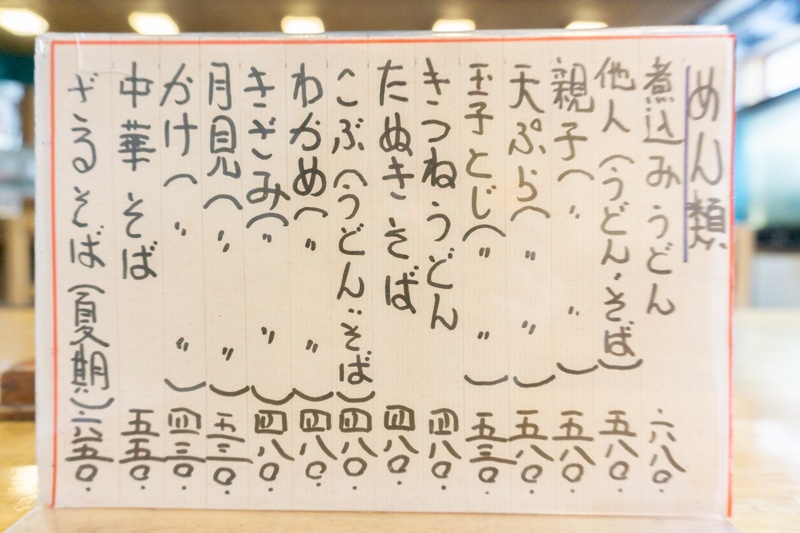 めん類
煮込みうどん 六八〇.
他人（うどん・そば） 五八〇.
親子（〃 〃） 五八〇.
天ぷら（〃 〃） 五八〇.
玉子とじ（〃 〃） 五三〇.
きつねうどん 四八〇.
たぬきそば 四八〇.
こぶ（うどん・そば） 四八〇.
わかめ（〃 〃） 四八〇.
きざみ（〃 〃） 四八〇.
月見（〃 〃） 五三〇.
かけ（〃 〃） 四三〇.
中華そば 五五〇.
ざるそば（夏期） 六五〇.